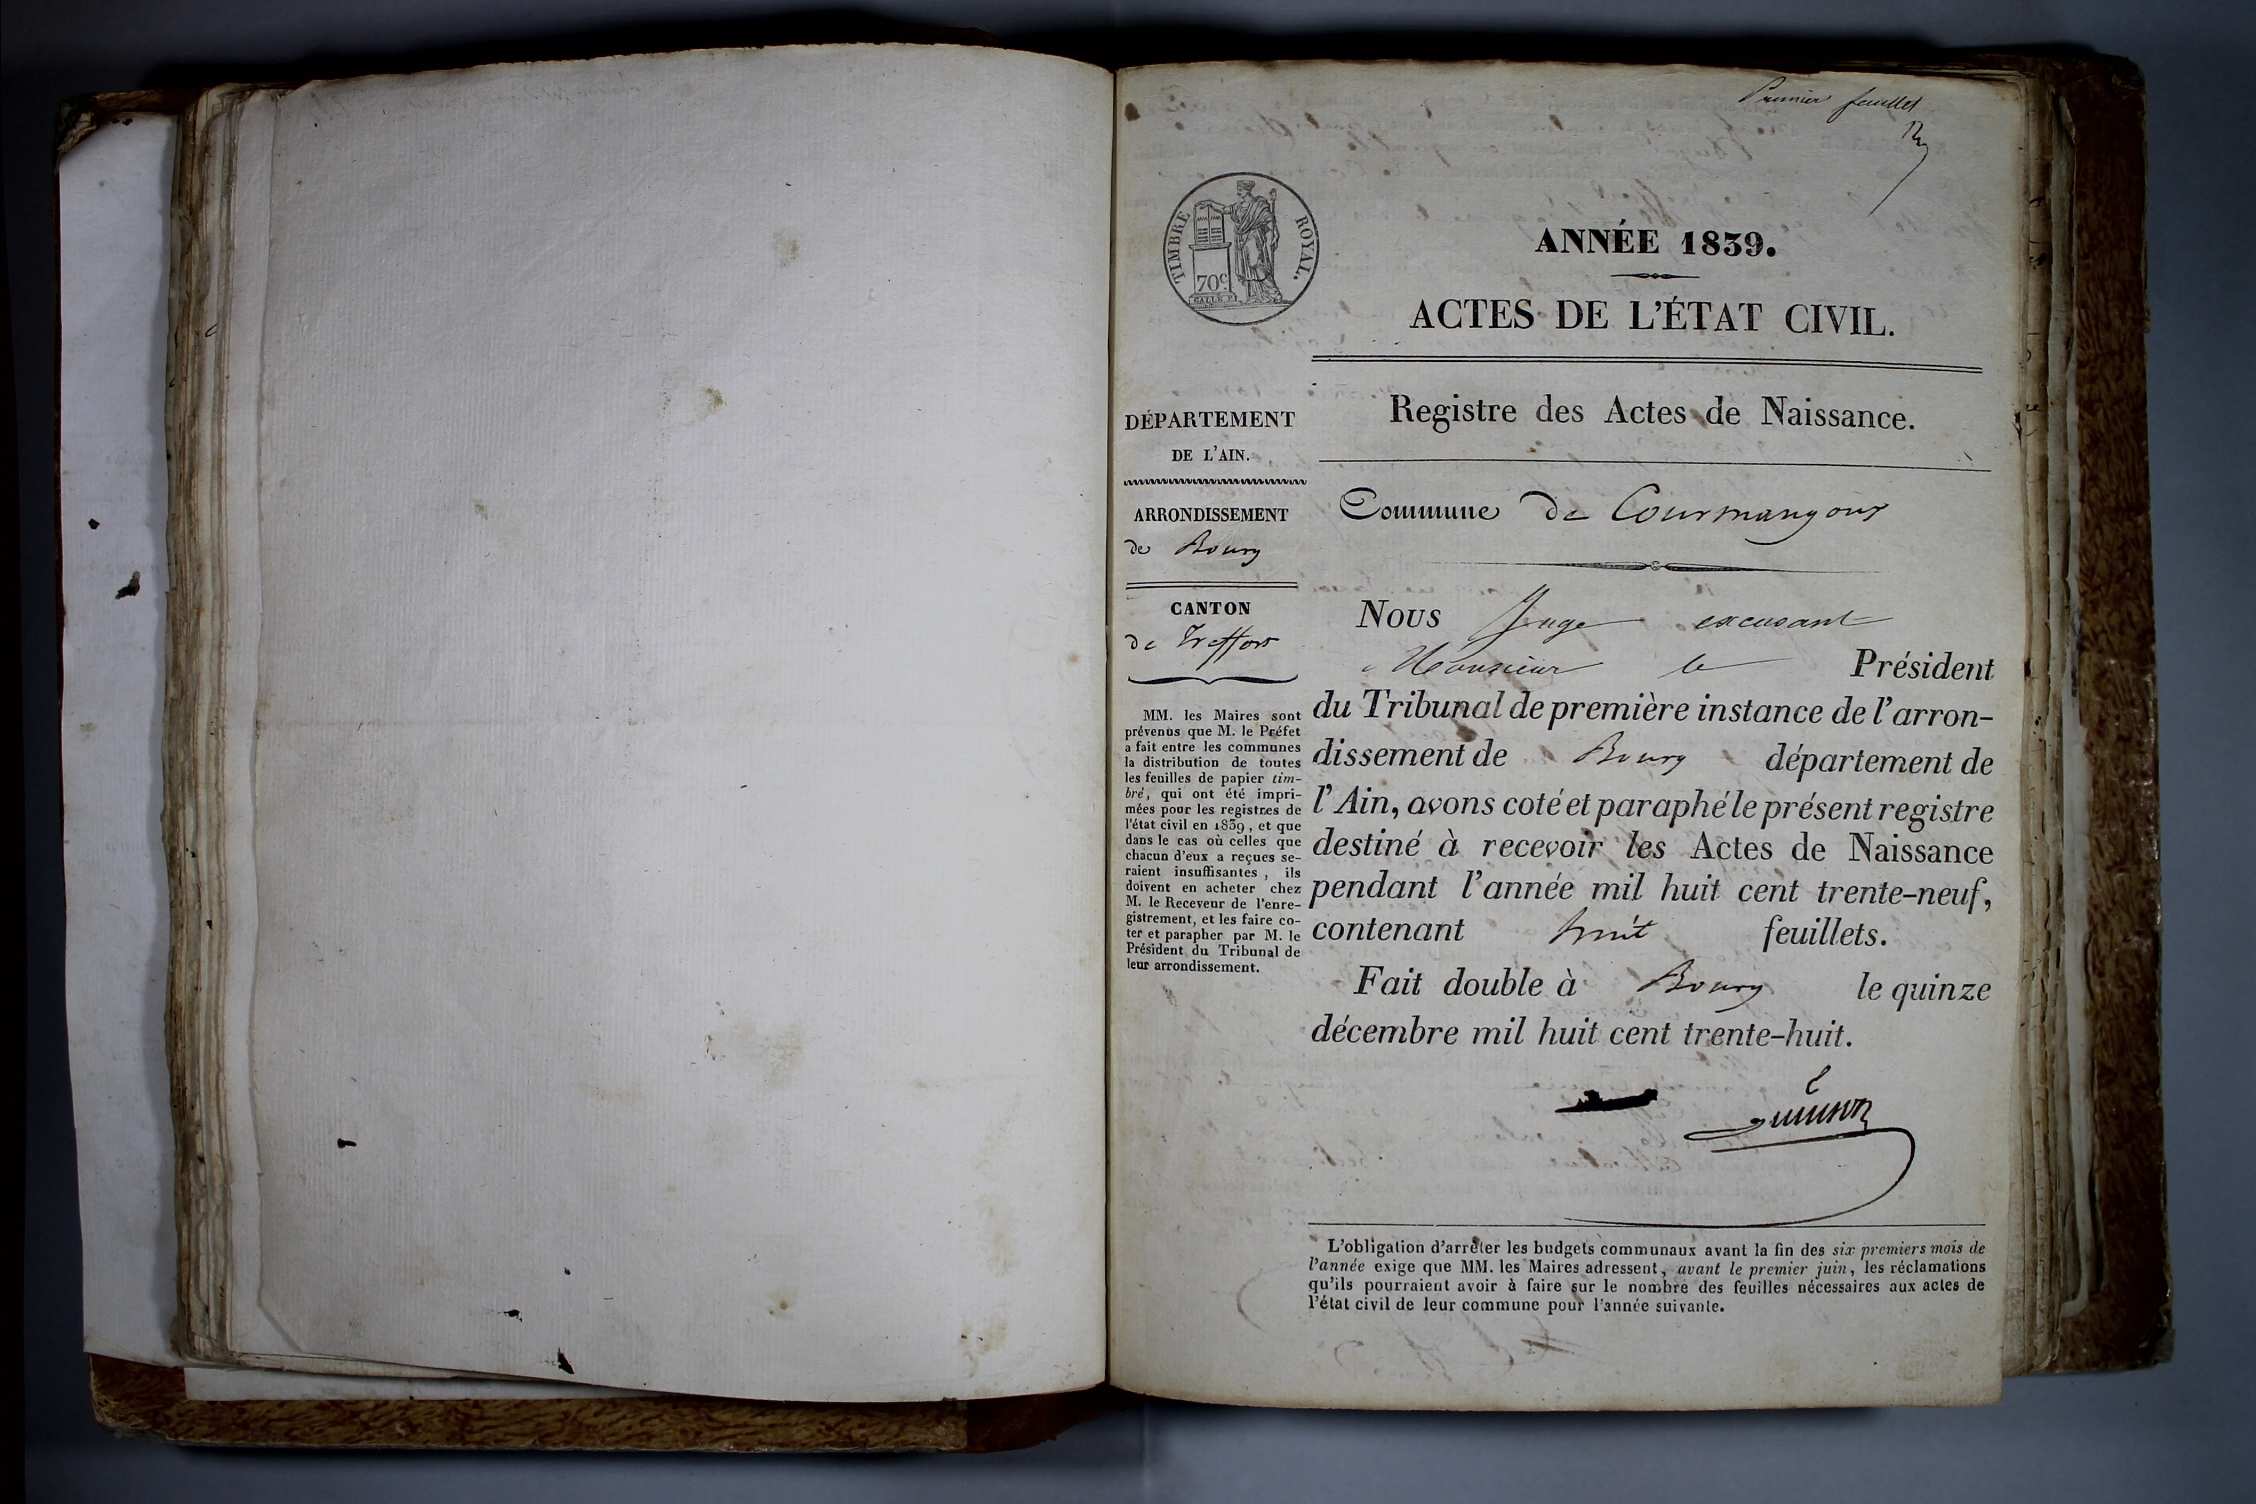 Premier feuillet
TIMBRE ROYAL.
70c
GALLE F.
ANNÉE 1839.
ACTES DE L'ÉTAT CIVIL.
Registre des Actes de Naissance.
DÉPARTEMENT
DE L'AIN.
ARRONDISSEMENT
de Bourg
CANTON
de Treffort
MM. les Maires sont
prévenus que M. le Préfet
a fait entre les communes
la distribution de toutes
les feuilles de papier tim-
bré, qui ont été impri-
mées pour les registres de
l'état civil en 1839, et que
dans le cas où celles que
chacun d'eux a reçues se-
raient insuffisantes, ils
doivent en acheter chez
M. le Receveur de l'enre-
gistrement, et les faire co-
ter et parapher par M. le
Président du Tribunal de
leur arrondissement.
Commune de Courmangoux
Nous Juge excusant
Monsieur le Président
du Tribunal de première instance de l'arron-
dissement de Bourg département de
l'Ain, avons coté et paraphé le présent registre
destiné à recevoir les Actes de Naissance
pendant l'année mil huit cent trente-neuf,
contenant huit feuillets.
Fait double à Bourg le quinze
décembre mil huit cent trente-huit.
L'obligation d'arrêter les budgets communaux avant la fin des six premiers mois de
l'année exige que MM. les Maires adressent, avant le premier juin, les réclamations
qu'ils pourraient avoir à faire sur le nombre des feuilles nécessaires aux actes de
l'état civil de leur commune pour l'année suivante.